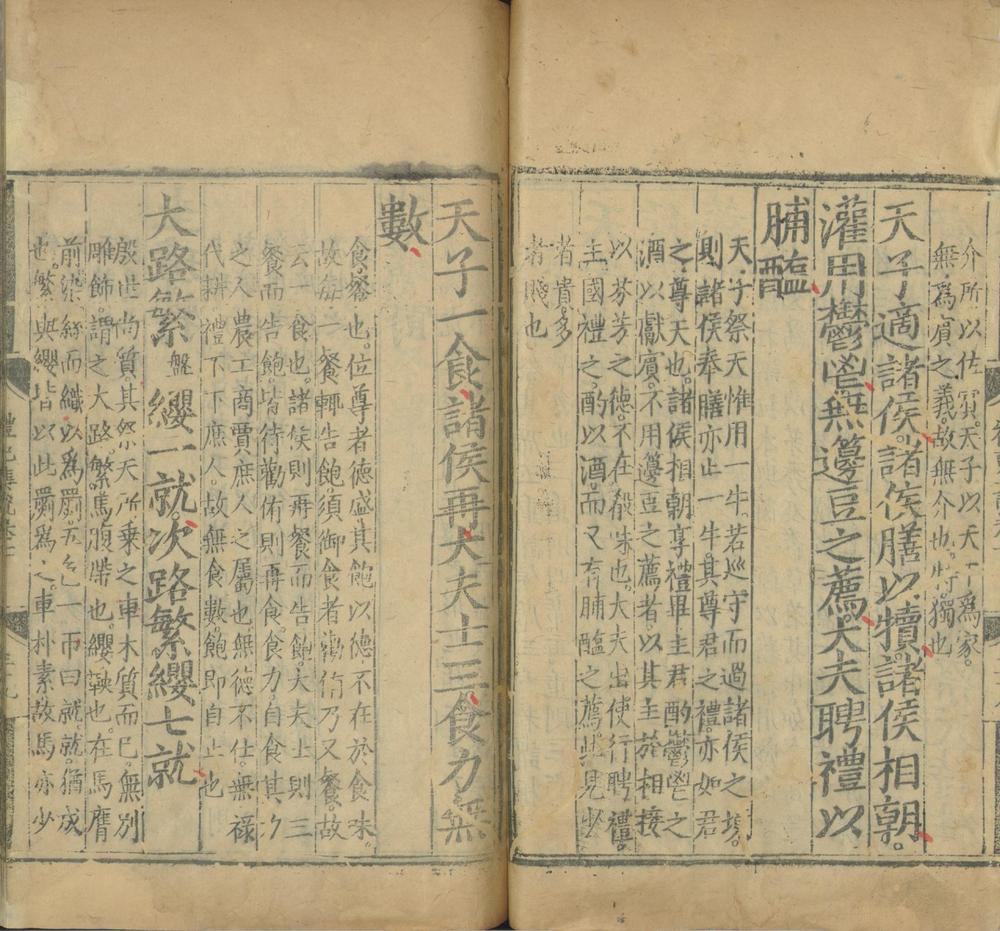 介所以佐賓天子以天下爲家
無爲賓之義故無介也特獨也
天子適諸侯諸侯膳以犢諸侯相朝
灌用鬱鬯無籩豆之薦大夫聘禮以
脯醢
天子祭天惟用一牛若巡守而過諸侯之境
則諸侯奉膳亦止一牛其尊君之禮亦如君
之尊天也諸侯相朝享禮畢主君酌鬱鬯之
酒以獻賓不用籩豆之薦者以其主於相接
以芬芳之德不在殽味也大夫出使行聘禮
主國禮之酌以酒而又有脯醢之薦此見少
者貴多
者賤也
天子一食諸侯再大夫士三食力無
數
食飧也位尊者德盛其飽以德不在於食味
故每一飧輒告飽須御食者勸侑乃又飧故
云一食也諸侯則再飧而告飽大夫士則三
飧而告飽皆待勸侑則再食食力自食其力
之人農工商賈庶人之屬也無德不仕無祿
代耕禮不下庶人故無食數飽即自止也
大路繁盤纓一就次路繁纓七就
殷世尚質其祭天所乘之車木質而已無別
雕飾謂之大路繁馬腹帶也纓鞅也在馬膺
前染絲而織以爲罽五色一帀曰就就猶成
也繁與纓皆以此罽爲之車朴素故馬亦少